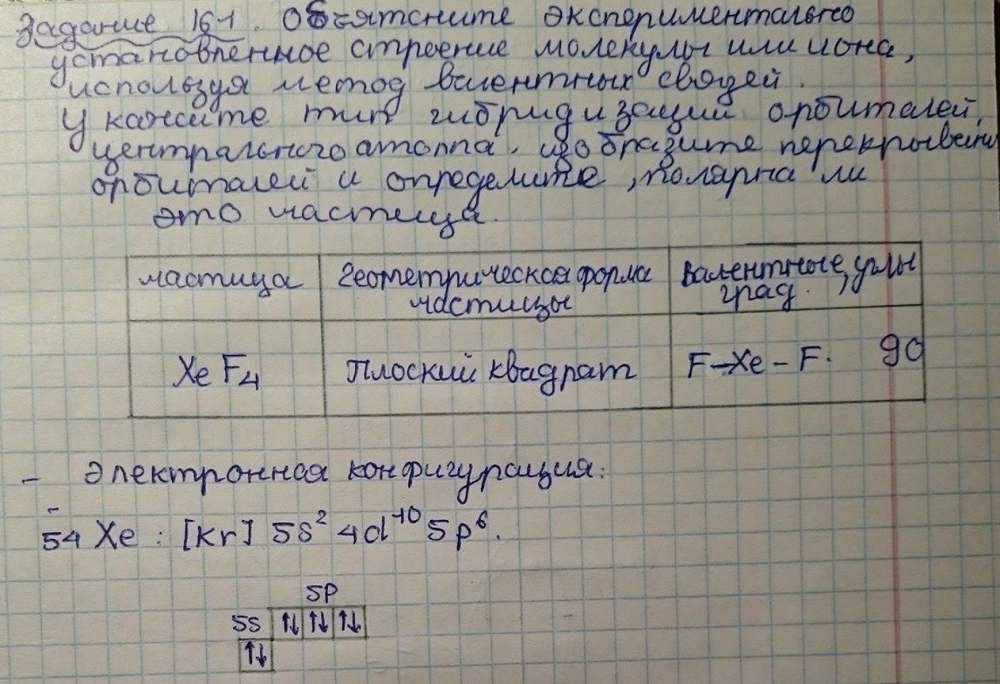 Задание 16-1. Объятсните экспериментально
установленное строение молекулы или иона,
используя метод валентных связей.
Укажите тип гибридизации орбиталей
центрального атома, изобразите перекрывани
орбиталей и определите, полярна ли
это частица.
частица геометрическая форма частицы валентные углы, град.
XeF4 Плоский квадрат F-Xe-F. 90
- Электронная конфигурация:
54 Xe : [Kr] 5s² 4d¹⁰ 5p⁶.
5P
5s ↑↓ ↑↓ ↑↓
↑↓